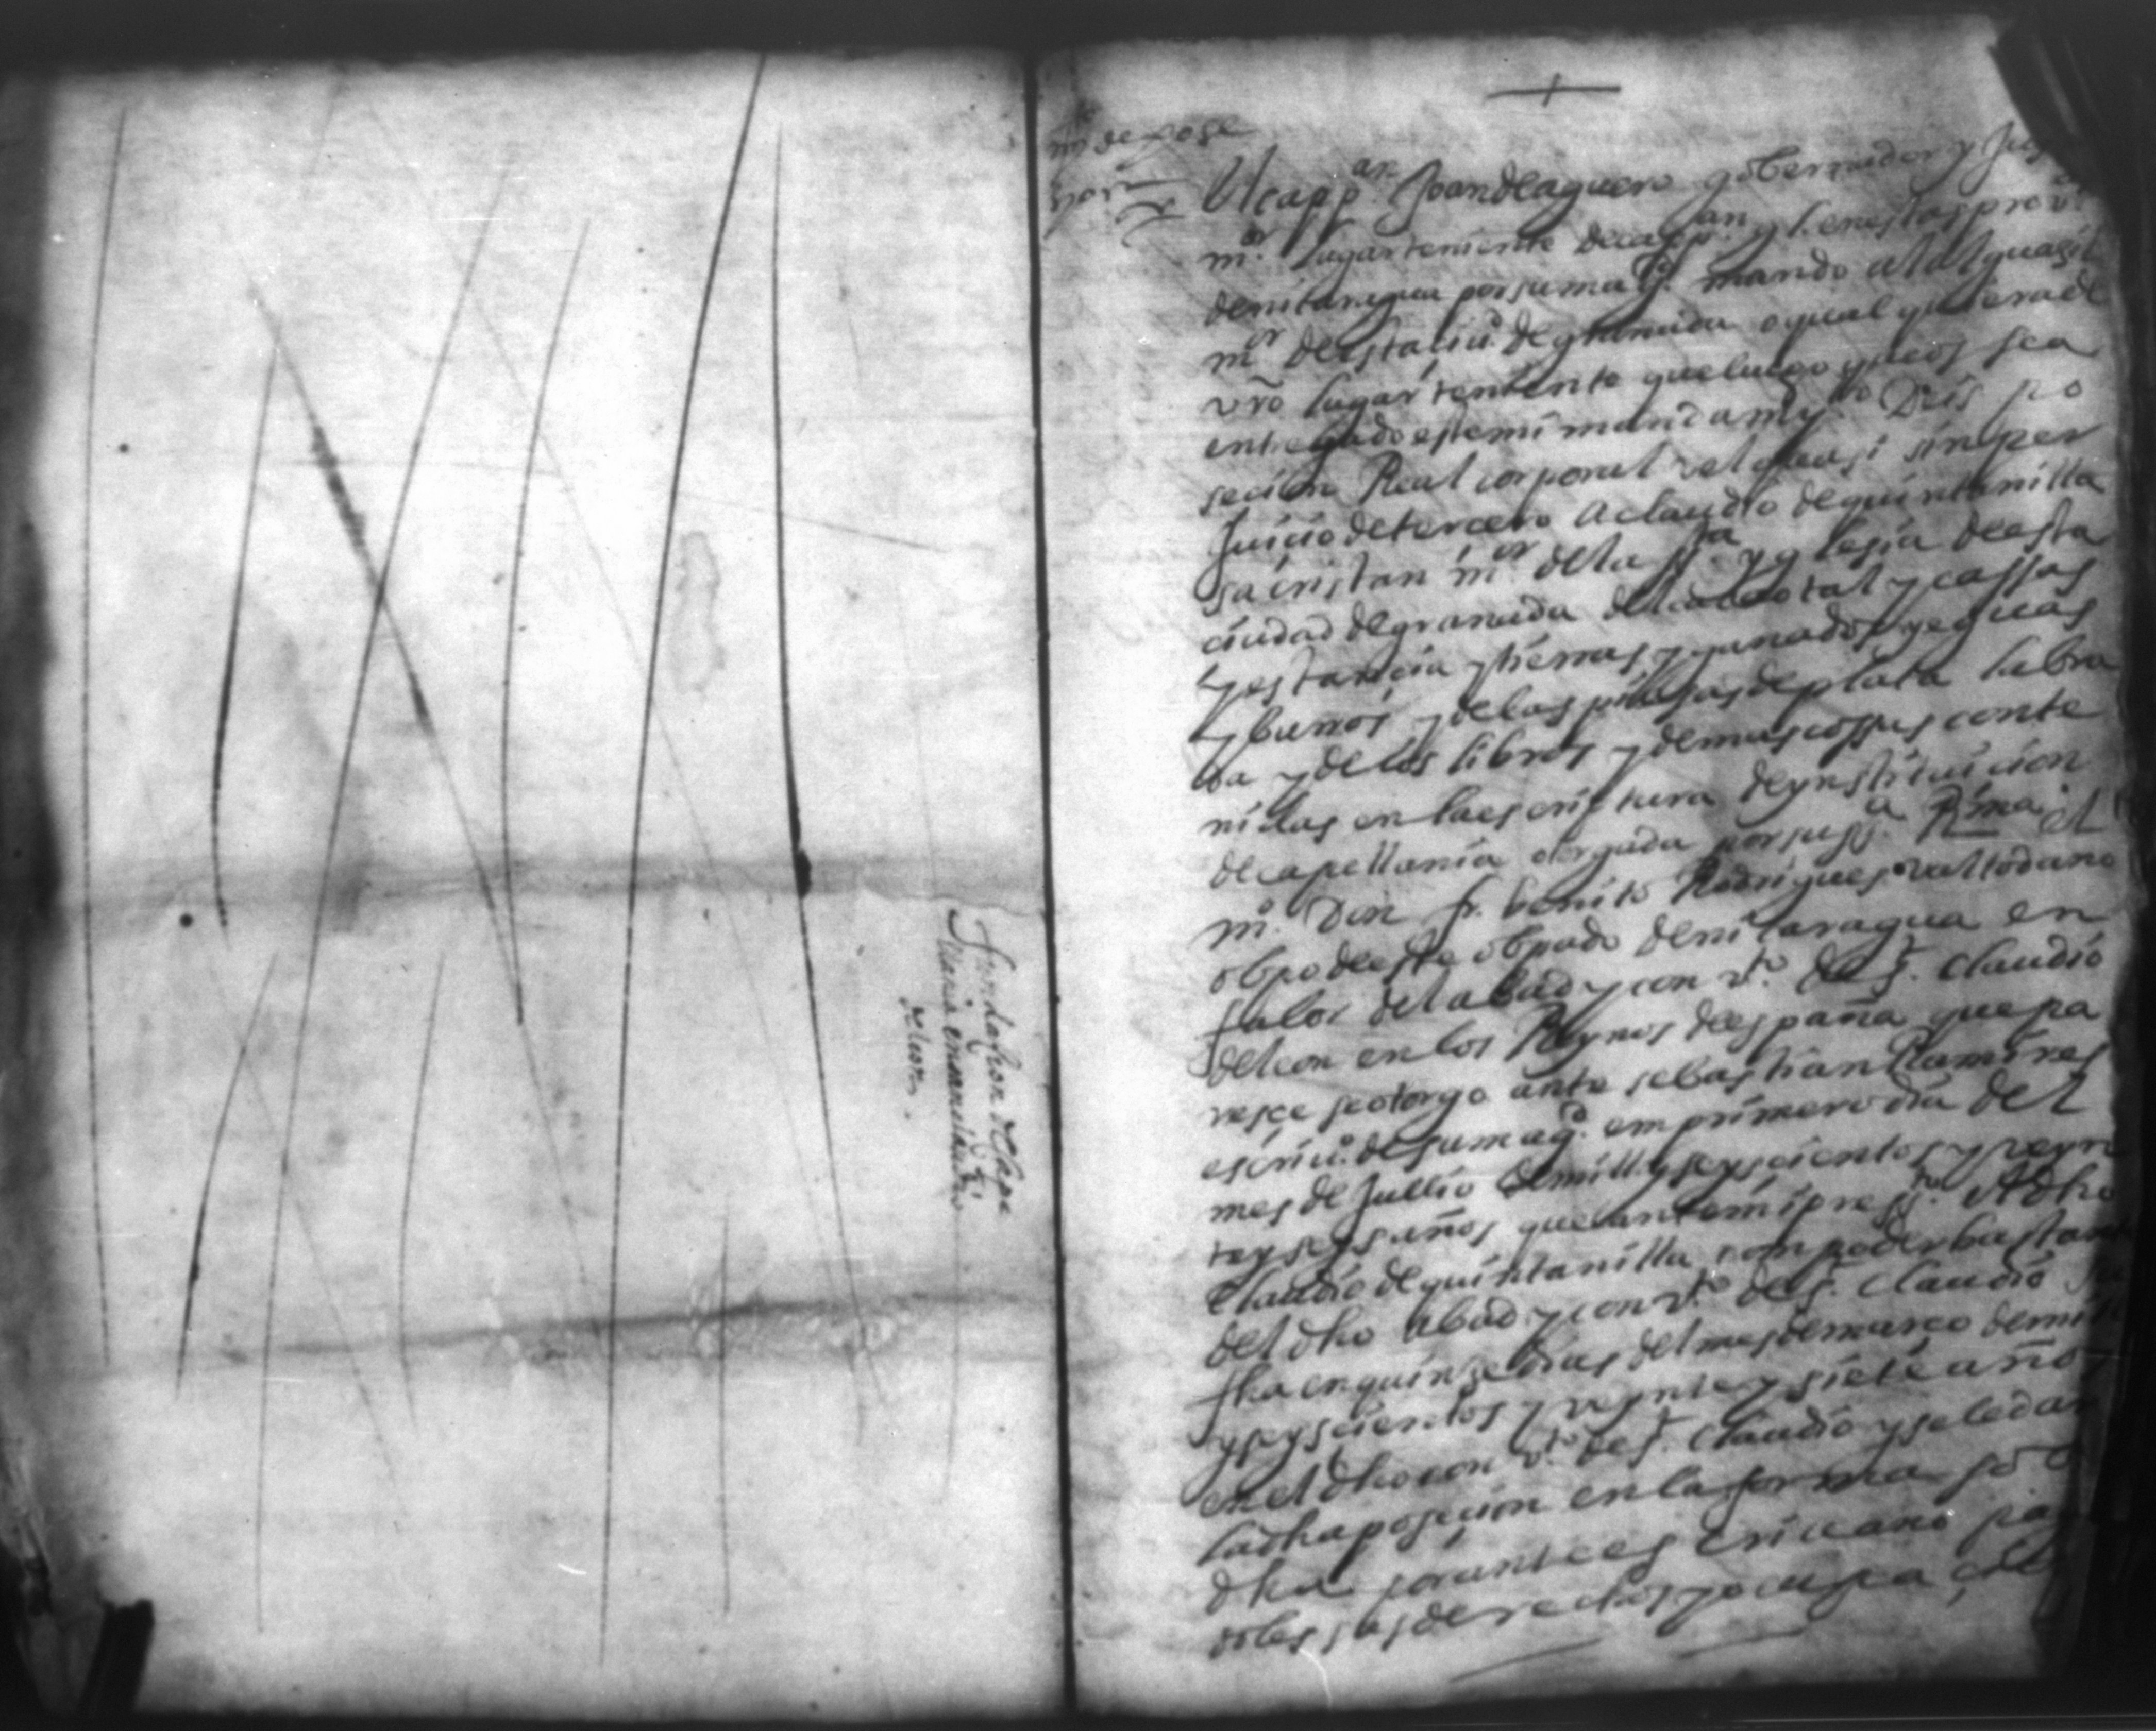 fundaçion de la cape
llania en san claudio
de leon.
+
mto de pose
çion
El cappan Joan de aguero governador y Jus
mor lugarteniente de cappan gl en estas prova
de nicaragua por su magd mando al alguazil
mor de esta ciud de granada o qual quiera de
vro lugar teniente que luego que os sea
entregado este mi mandamyto deis po
secion Real corporal vel quasi sin per
Juicio de tercero a claudio de quintanilla
sacristan mor de la sta yglesia de esta
ciudad de granada del cacaotal y cassas
y estancia y tierras y ganados yeguas
y de las piesas de plata labra
da y de los libros y demas cossas conte
nidas en la escriptura de ynstituicion
de capellania otorgada por su sa Rma el
mo Don fr. benito Rodrigues valtodano
obpo de este obpado de nicaragua en
fabor del abad y conVto de S. claudio
de leon en los Reynos de españa que pa
resce se otorgo ante sebastian Ramires
escriuo de su magd em primero dia del
mes de Jullio de mill y seyscientos y veyn
te y seys años que ante mi presto El dho
claudio de quintanilla con poder bastan
del dho abad y conVto de S. claudio su
fha en quinze dias del mes de março de mil
y seyscientos y veynte y siete años
en el dho conVto de S. claudio y se le dar
la dha posecion en la forma so
dha por ante escriuano pa
doles sus derechos